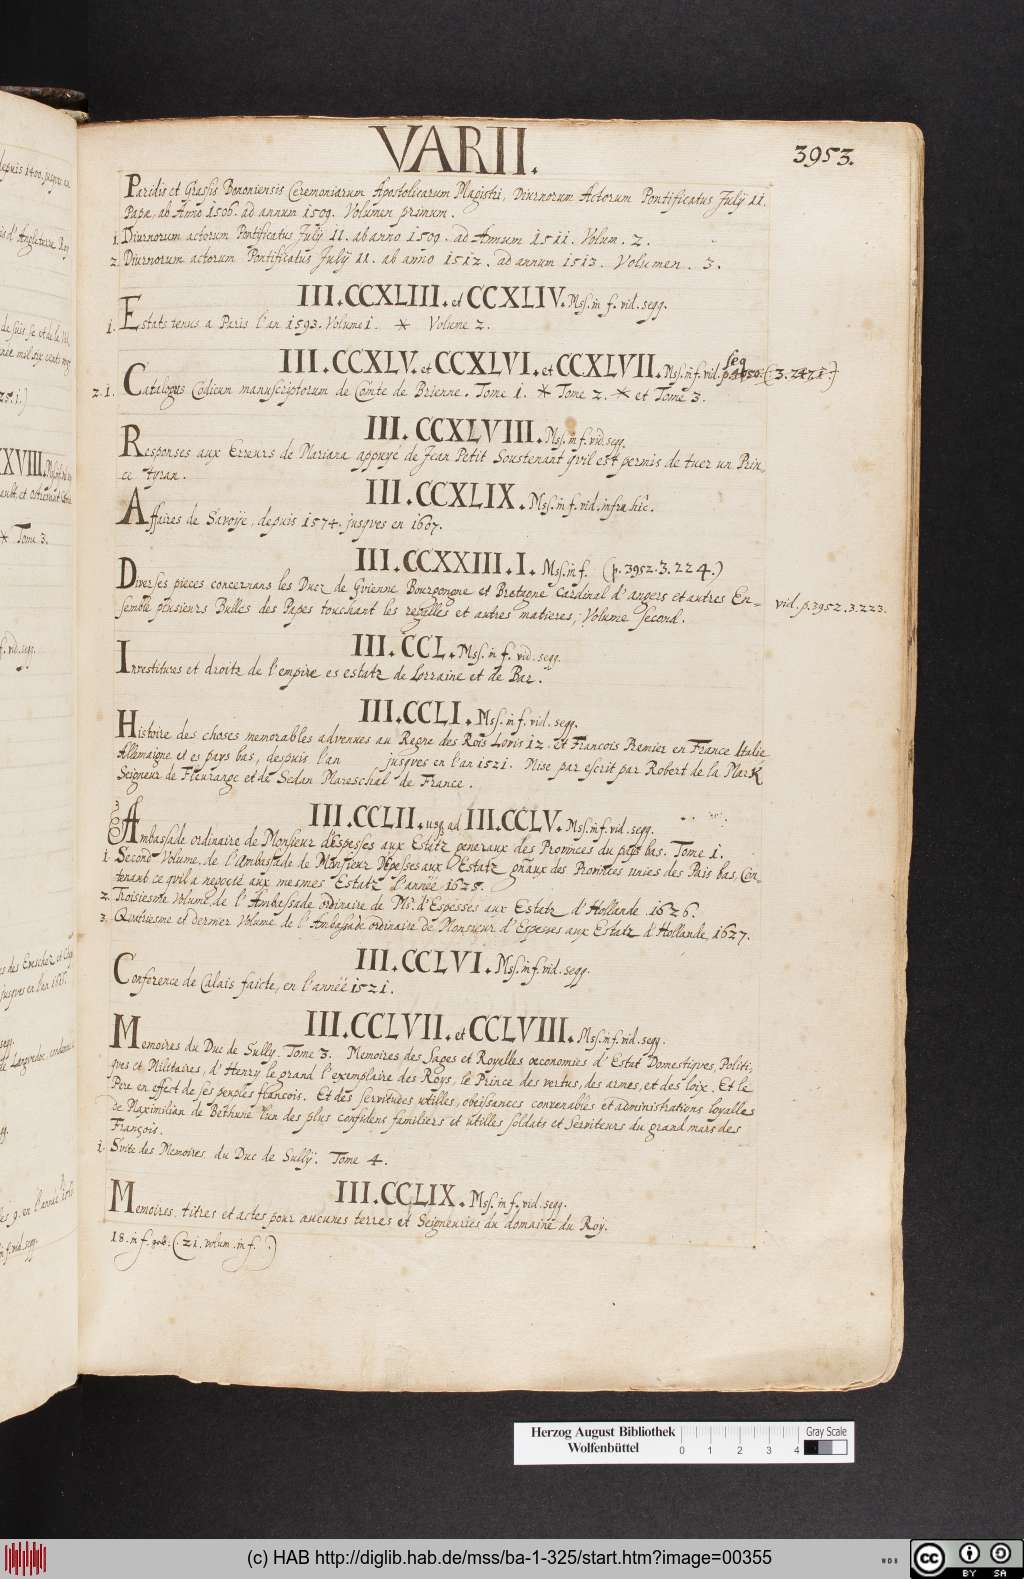 VARII.
3953.
Paridis et Grassis Bononiensis Ceremoniarum Apostolicarum Magistri, Diurnorum Actorum Pontificatus Julij II.
Papa, ab Anno 1506. ad annum 1509. Volumen primum.
1. Diurnorum actorum Pontificatus Julij II. ab anno 1509. ad Annum 1511. Volum. 2.
2. Diurnorum actorum Pontificatus Julij II. ab anno 1512. ad annum 1513. Volumen. 3.
III.CCXLIII. et CCXLIV. Mss. in f. vid. segg.
1. Estats tenus a Paris l'an 1593. Volume 1. * Volume 2.
III.CCXLV. et CCXLVI. et CCXLVII. Mss. in f. vid. seq
2.1. Catalogus Codicum manuscriptorum de Comte de Brienne. Tome 1. * Tome 2. * et Tome 3.
III. CCXLVIII. Mss. in f. vid. segg.
Responses aux Erreurs de Mariana appuye de Jean Petit Soustenant qvil est permis de tuer un Prin,
ce tyran.
III.CCXLIX. Mss. in f. vid. infra hic.
Affaires de Savoije, depuis 1574. jusqves en 1607.
III.CCXXIII.I. Mss. in f. (p. 3952.3.224.)
Diverses pieces concernans les Ducz de Gvienne Bourgongne et Bretagne Cardinal d'angers et autres En=
semble plusieurs Bulles des Papes touchant les rebelles et autres matieres; Volume second.
vid. p. 3952.3.223.
III.CCL. Mss. in f. vid. segg.
Investitures et droitz de l'empire es estatz de Lorraine et de Bar.
III.CCLI. Mss. in f. vid. segg.
Histoire des choses memorables advenues au Regne des Rois Lovis 12. et Francois Premier en France Italie
Allemaigne et es pays bas, despuis l'an jusqves en l'an 1521. Mise par escrit par Robert de la Mark
Seigneur de Fleurange et de Sedan Mareschal de France.
III.CCLII. usq ad III.CCLV. Mss. in f. vid. segg.
Ambassade ordinaire de Monsieur d'espesses aux Estatz generaux des Provinces du pays bas. Tome 1.
1. Second Volume de l'Ambassade de Monsieur Despesses aux Estatz gnaux des Provinces unies des Pais bas Con-
tenant ce qvil a negotié aux mesmes Estatz l'année 1625.
2. Troisiesme Volume de l'Ambassade ordinaire de Mr. d'Espesses aux Estatz d'Hollande 1626.
3. Quatriesme et dernier Volume de l'Ambassade ordinaire de Monsieur d'Espesses aux Estatz d'Hollande 1627.
III.CCLVI. Mss. in f. vid. segg.
Conference de Calais faicte, en l'année 1521.
III.CCLVII. et CCLVIII. Mss. in f. vid. segg.
Memoires du Duc de Sully. Tome 3. Memoires des Sages et Royalles œconomies d'Estat Domestiqves, Politi,
qves et Militaires, d'Henry le grand l'exemplaire des Roys, le Prince des vertus, des armes, et des loix. Et le
Pere en effect de ses peuples francois. Et des servitudes utilles, obeissances convenables et administrations loyalles
de Maximilian de Bethune l'un des plus confidens familiers et utilles soldats et serviteurs du grand mars des
François.
1. Svite des Memoires du Duc de Sullÿ. Tome 4.
III.CCLIX. Mss. in f. vid. segg.
Memoires, titres et actes pour aucunes terres et Seigneuries du domaine du Roy.
18. in f. (21. volum. in f.)
Herzog August Bibliothek
Wolfenbüttel
0 1 2 3 4
Gray Scale
(c) HAB http://diglib.hab.de/mss/ba-1-325/start.htm?image=00355
WDB
cc BY SA